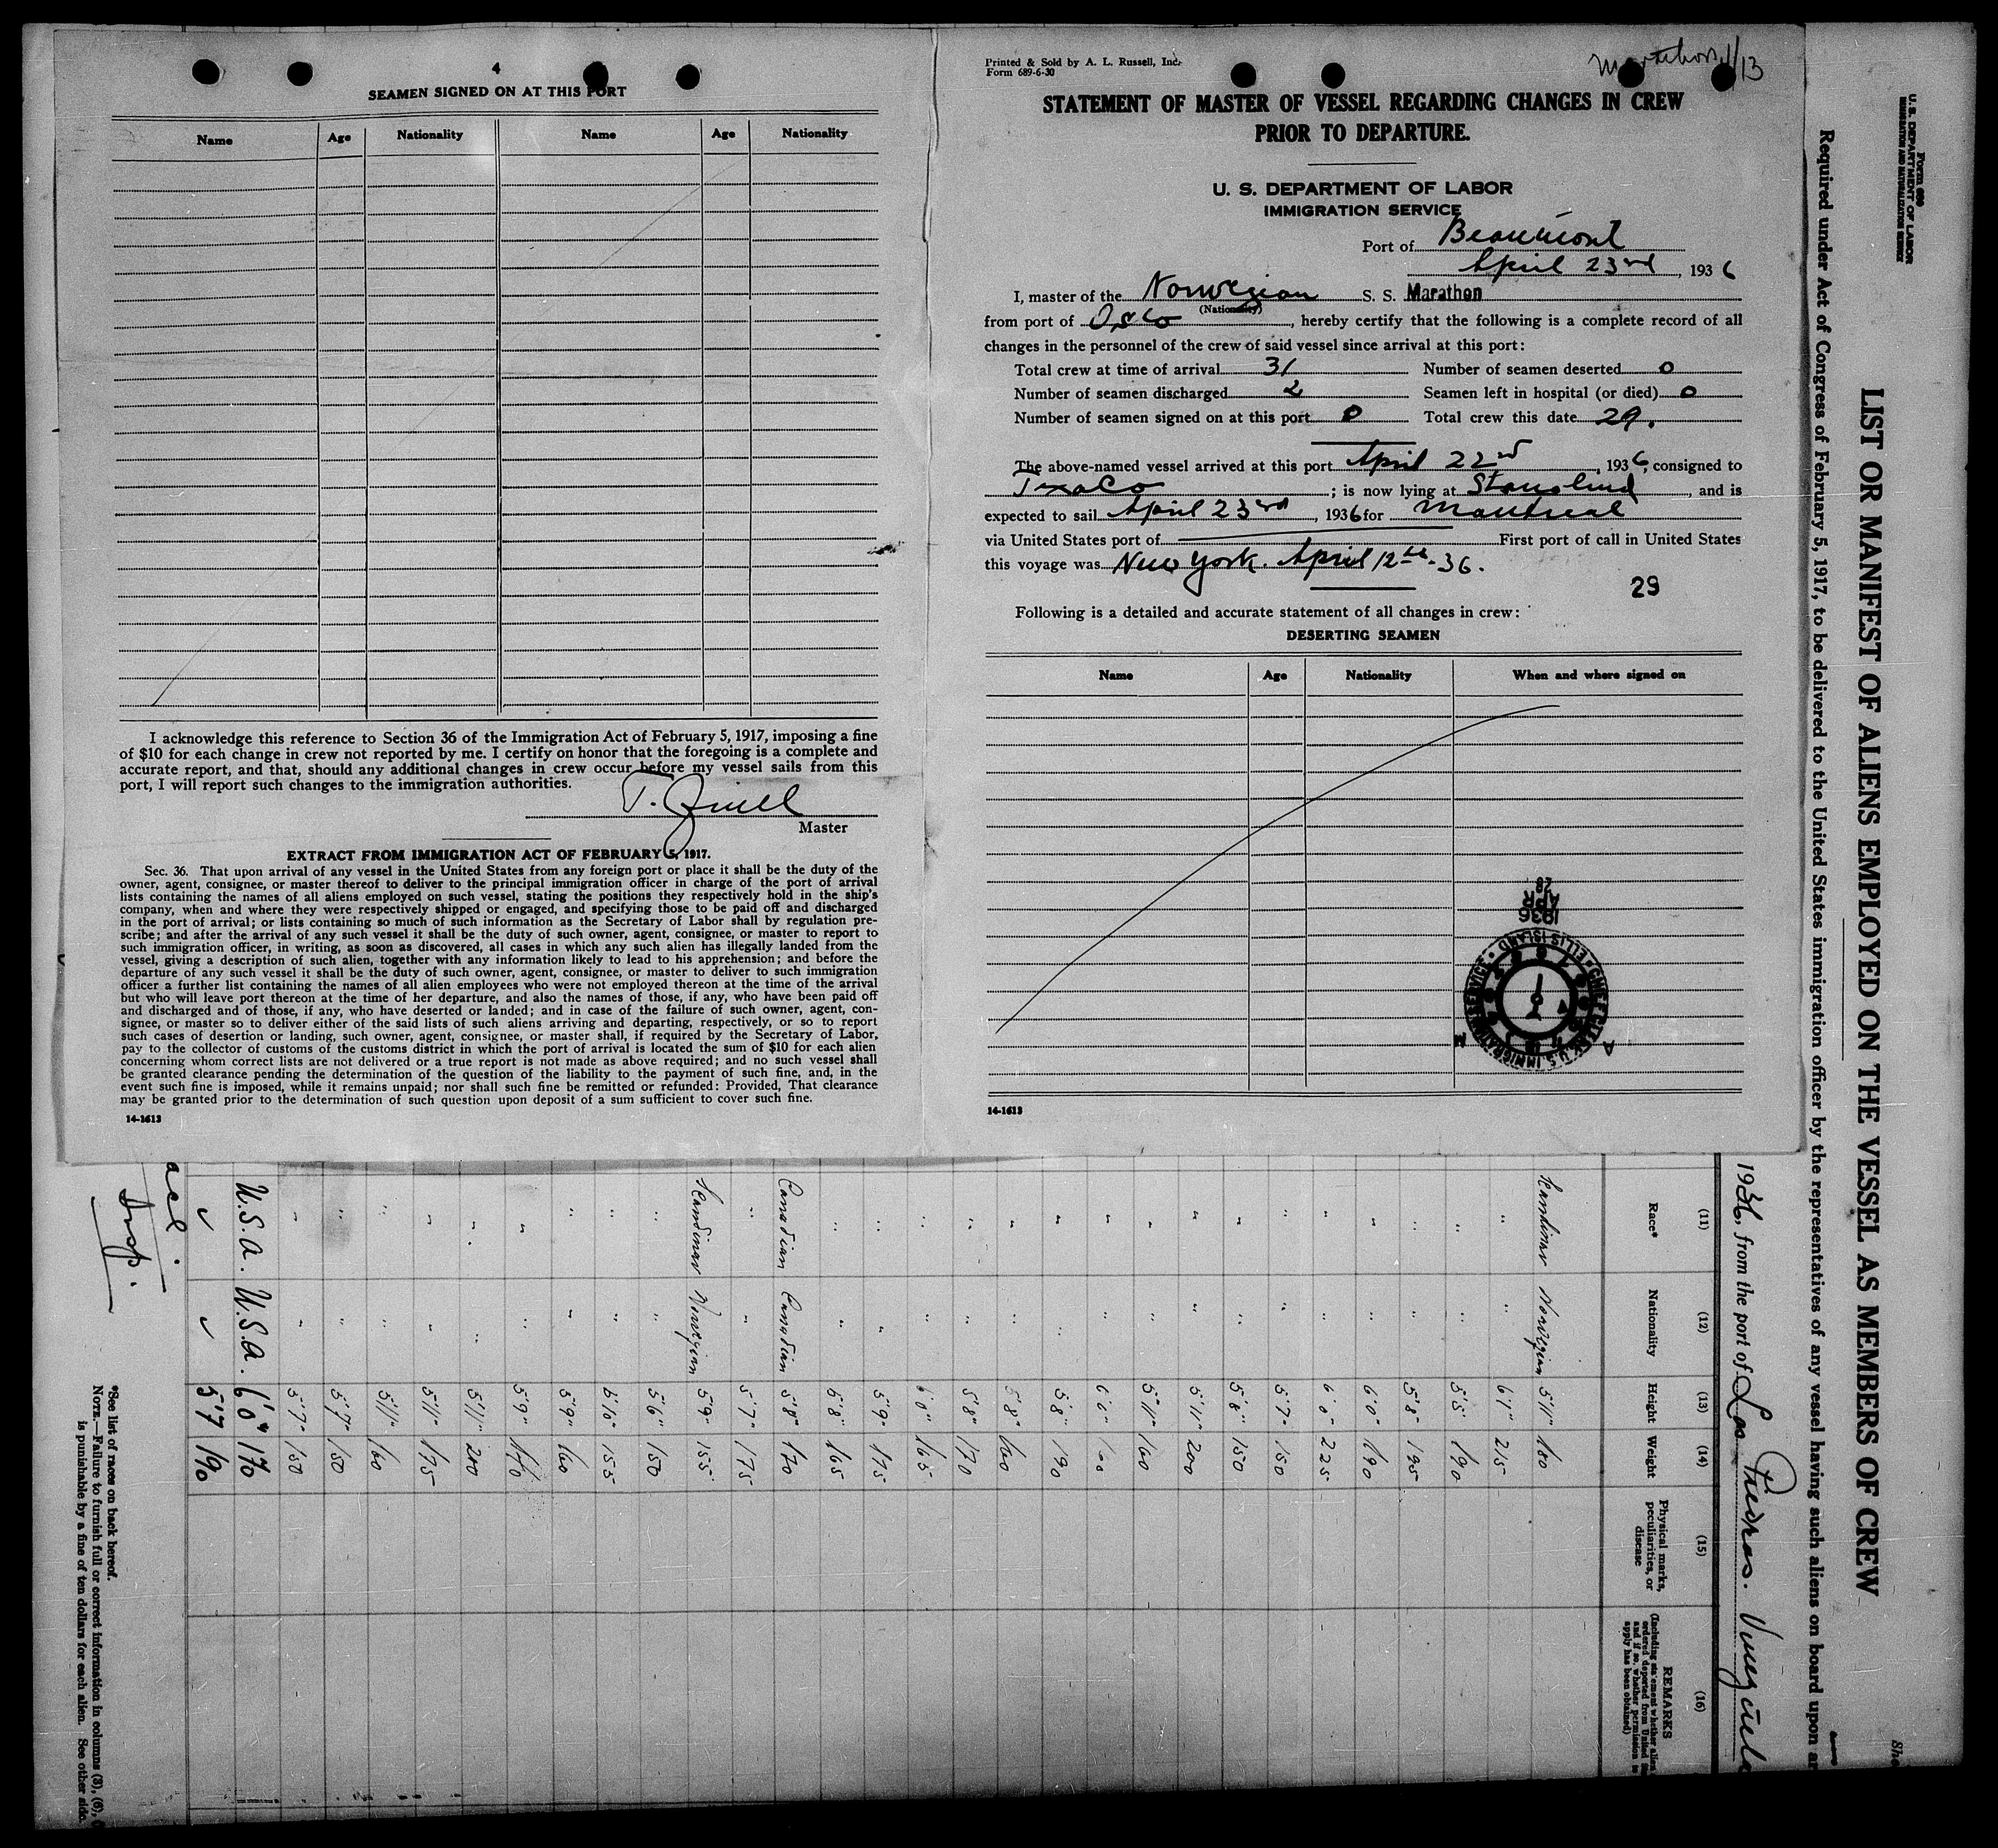 4
SEAMEN SIGNED ON AT THIS PORT
Name Age Nationality Name Age Nationality
I acknowledge this reference to Section 36 of the Immigration Act of February 5, 1917, imposing a fine
of $10 for each change in crew not reported by me. I certify on honor that the foregoing is a complete and
accurate report, and that, should any additional changes in crew occur before my vessel sails from this
port, I will report such changes to the immigration authorities.
Master
EXTRACT FROM IMMIGRATION ACT OF FEBRUARY 5, 1917.
Sec. 36. That upon arrival of any vessel in the United States from any foreign port or place it shall be the duty of the
owner, agent, consignee, or master thereof to deliver to the principal immigration officer in charge of the port of arrival
lists containing the names of all aliens employed on such vessel, stating the positions they respectively hold in the ship's
company, when and where they were respectively shipped or engaged, and specifying those to be paid off and discharged
in the port of arrival; or lists containing so much of such information as the Secretary of Labor shall by regulation pre-
scribe; and after the arrival of any such vessel it shall be the duty of such owner, agent, consignee, or master to report to
such immigration officer, in writing, as soon as discovered, all cases in which any such alien has illegally landed from the
vessel, giving a description of such alien, together with any information likely to lead to his apprehension; and before the
departure of any such vessel it shall be the duty of such owner, agent, consignee, or master to deliver to such immigration
officer a further list containing the names of all alien employees who were not employed thereon at the time of the arrival
but who will leave port thereon at the time of her departure, and also the names of those, if any, who have been paid off
and discharged and of those, if any, who have deserted or landed; and in case of the failure of such owner, agent, con-
signee, or master so to deliver either of the said lists of such aliens arriving and departing, respectively, or so to report
such cases of desertion or landing, such owner, agent, consignee, or master shall, if required by the Secretary of Labor,
pay to the collector of customs of the customs district in which the port of arrival is located the sum of $10 for each alien
concerning whom correct lists are not delivered or a true report is not made as above required; and no such vessel shall
be granted clearance pending the determination of the question of the liability to the payment of such fine, and, in the
event such fine is imposed, while it remains unpaid; nor shall such fine be remitted or refunded: Provided, That clearance
may be granted prior to the determination of such question upon deposit of a sum sufficient to cover such fine.
14-1613
Printed & Sold by A. L. Russell, Inc.
Form 689-6-30
STATEMENT OF MASTER OF VESSEL REGARDING CHANGES IN CREW
PRIOR TO DEPARTURE.
U. S. DEPARTMENT OF LABOR
IMMIGRATION SERVICE
Port of Beaumont
April 23rd, 1936
I, master of the Norwegian S. S. Marathon
(Nationality)
from port of Oslo, hereby certify that the following is a complete record of all
changes in the personnel of the crew of said vessel since arrival at this port:
Total crew at time of arrival 31 Number of seamen deserted 0
Number of seamen discharged 2 Seamen left in hospital (or died) 0
Number of seamen signed on at this port 0 Total crew this date 29.
The above-named vessel arrived at this port April 22nd, 1936, consigned to
Texaco; is now lying at , and is
expected to sail April 23rd, 1936 for Montreal
via United States port of First port of call in United States
this voyage was New York. April 12th-36.
29
Following is a detailed and accurate statement of all changes in crew:
DESERTING SEAMEN
Name Age Nationality When and where signed on
1936
APR
28
CHIEF CLERK U.S. IMMIGRATION SERVICE ELLIS ISLAND
A M
14-1613
Form 689
U. S. DEPARTMENT OF LABOR
IMMIGRATION AND NATURALIZATION SERVICE
LIST OR MANIFEST OF ALIENS EMPLOYED ON THE VESSEL AS MEMBERS OF CREW
Required under Act of Congress of February 5, 1917, to be delivered to the United States immigration officer by the representatives of any vessel having such aliens on board upon
1936, from the port of Las Piedras.
(11) (12) (13) (14) (15) (16)
Race* Nationality Height Weight Physical marks, peculiarities, or disease REMARKS
Scandinav Norwegian 5'11" 180
" " 6'1" 215
" " 5'5" 190
" " 5'8" 195
" " 6'0" 190
" " 6'0" 225
" " 5'7" 150
" " 5'8" 150
" " 5'11" 200
" " 5'11" 160
" " 6'0"
" " 5'8" 190
" " 5'8" 160
" " 5'8" 170
" " 6'0" 165
" " 5'9" 175
" " 5'8" 165
Canadian Canadian 5'8" 170
" " 5'7" 175
Scandinav Norwegian 5'9" 155
" " 5'6" 150
" " 155
" " 5'9" 160
" " 5'9" 170
" " 5'11" 200
" " 5'11" 175
" " 5'11" 160
" " 5'7" 150
" " 5'7" 150
U.S.a. U.S.a. 6'0" 170
✓ ✓ 5'7 190
Insp.
*See list of races on back hereof.
NOTE.—Failure to furnish full or correct information in columns (3), (6),
is punishable by a fine of ten dollars for each alien. See other side.